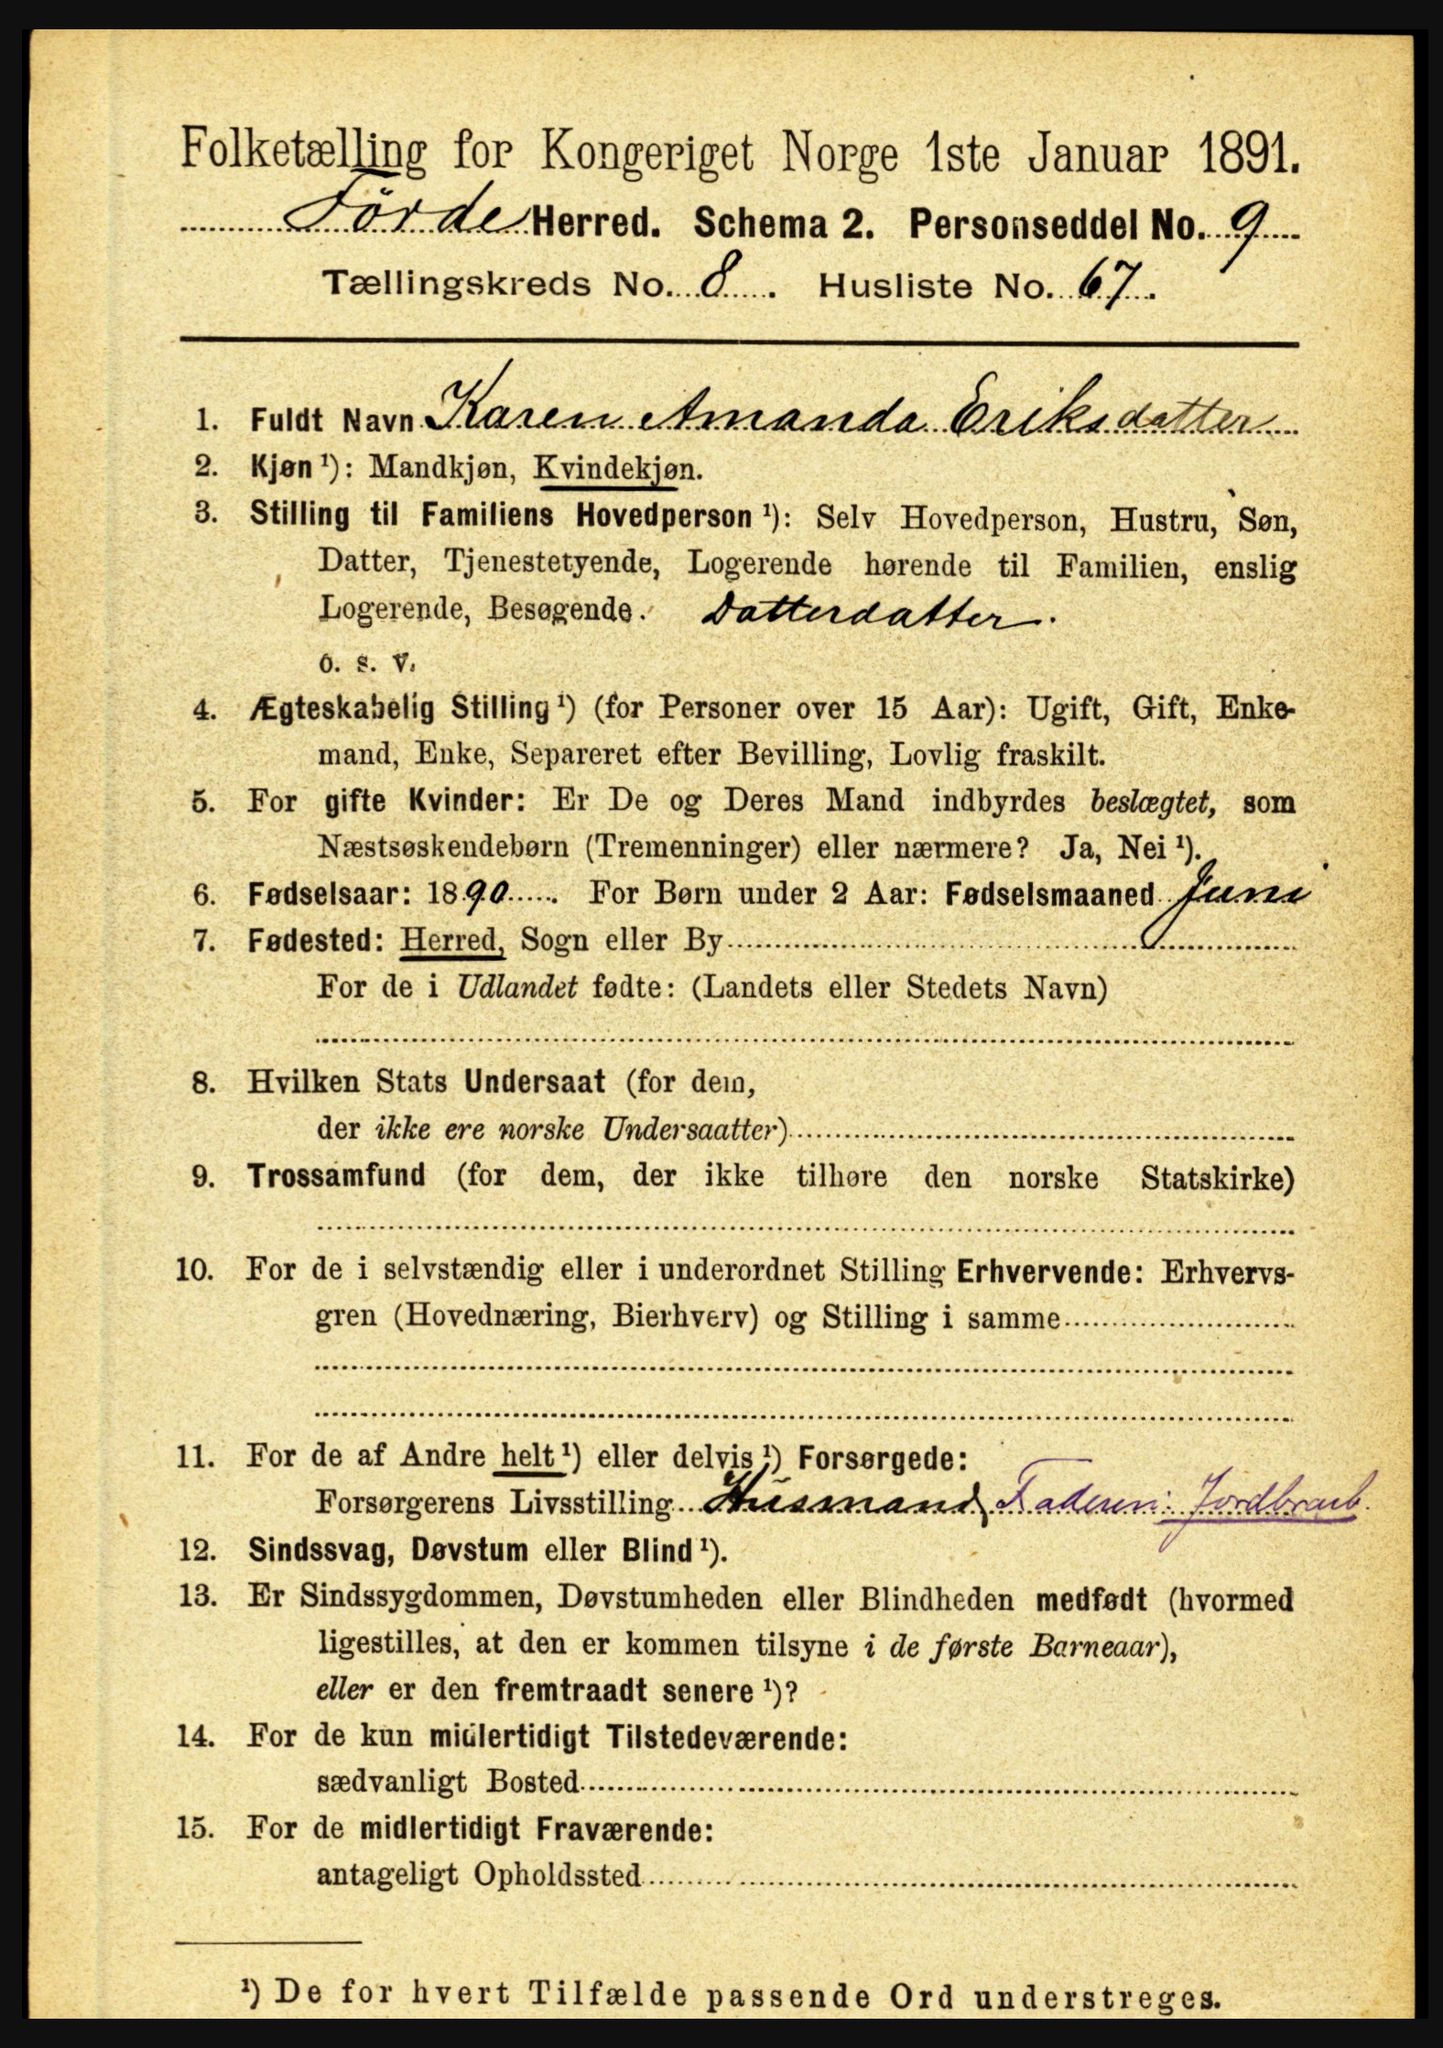 Folketælling for Kongeriget Norge 1ste Januar 1891.
Förde Herred. Schema 2. Personseddel No. 9
Tællingskreds No. 8. Husliste No. 67.
1. Fuldt Navn Karen Amanda Eriksdatter
2. Kjøn ¹): Mandkjøn, Kvindekjøn.
3. Stilling til Familiens Hovedperson ¹): Selv Hovedperson, Hustru, Søn,
Datter, Tjenestetyende, Logerende hørende til Familien, enslig
Logerende, Besøgende. Datterdatter.
o. s. v.
4. Ægteskabelig Stilling ¹) (for Personer over 15 Aar): Ugift, Gift, Enke-
mand, Enke, Separeret efter Bevilling, Lovlig fraskilt.
5. For gifte Kvinder: Er De og Deres Mand indbyrdes beslægtet, som
Næstsøskendebørn (Tremenninger) eller nærmere? Ja, Nei ¹).
6. Fødselsaar: 1890. For Børn under 2 Aar: Fødselsmaaned Juni
7. Fødested: Herred, Sogn eller By
For de i Udlandet fødte: (Landets eller Stedets Navn)
8. Hvilken Stats Undersaat (for dem,
der ikke ere norske Undersaatter)
9. Trossamfund (for dem, der ikke tilhøre den norske Statskirke)
10. For de i selvstændig eller i underordnet Stilling Erhvervende: Erhvervs-
gren (Hovednæring, Bierhverv) og Stilling i samme
11. For de af Andre helt ¹) eller delvis ¹) Forsørgede:
Forsørgerens Livsstilling Husmand, Faderen: Jordbrarb.
12. Sindssvag, Døvstum eller Blind ¹).
13. Er Sindssygdommen, Døvstumheden eller Blindheden medfødt (hvormed
ligestilles, at den er kommen tilsyne i de første Barneaar),
eller er den fremtraadt senere ¹)?
14. For de kun midlertidigt Tilstedeværende:
sædvanligt Bosted
15. For de midlertidigt Fraværende:
antageligt Opholdssted
¹) De for hvert Tilfælde passende Ord understreges.